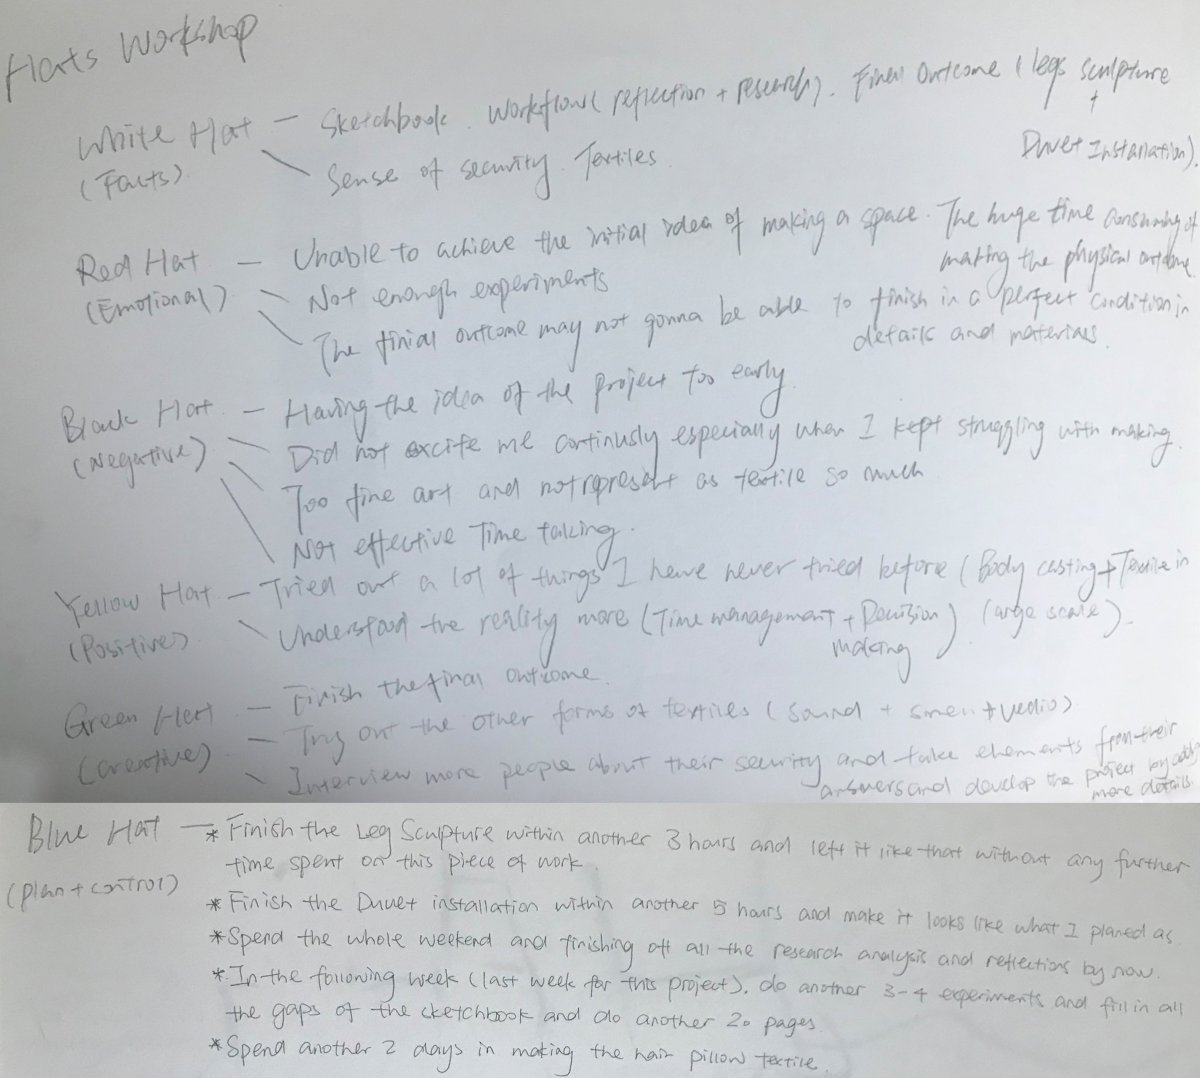 Hats Workshop
White Hat – Sketchbook. Workflow (reflection + research). Final Outcome (legs sculpture
+
(Facts) Sense of security. Textiles. Duvet Installation).
Red Hat – Unable to achieve the initial idea of making a space. The huge time consuming of
making the physical outcome
(Emotional) Not enough experiments
The finial outcome may not gonna be able to finish in a perfect condition in
details and materials.
Black Hat – Having the idea of the project too early.
(Negative) Did not excite me continusly especially when I kept struggling with making.
Too fine art and not represent as textile so much
Not effective Time taking.
Yellow Hat – Tried out a lot of things I have never tried before (Body casting + Textile in
large scale).
(Positive) Understood the reality more (Time management + Decision
making)
Green Hat – Finish the final outcome.
(Creative) – Try out the other forms of textiles (sound + smell + vedio)
Interview more people about their security and take elements from their
answers and develop the project by adding
more details.
Blue Hat – * Finish the Leg Sculpture within another 3 hours and left it like that without any further
time spent on this piece of work
(plan + control)
* Finish the Duvet installation within another 5 hours and make it looks like what I planed as.
* Spend the whole weekend and finishing off all the research analysis and reflections by now.
* In the following week (last week for this project), do another 3-4 experiments and fill in all
the gaps of the sketchbook and do another 20 pages.
* Spend another 2 days in making the hair pillow textile.